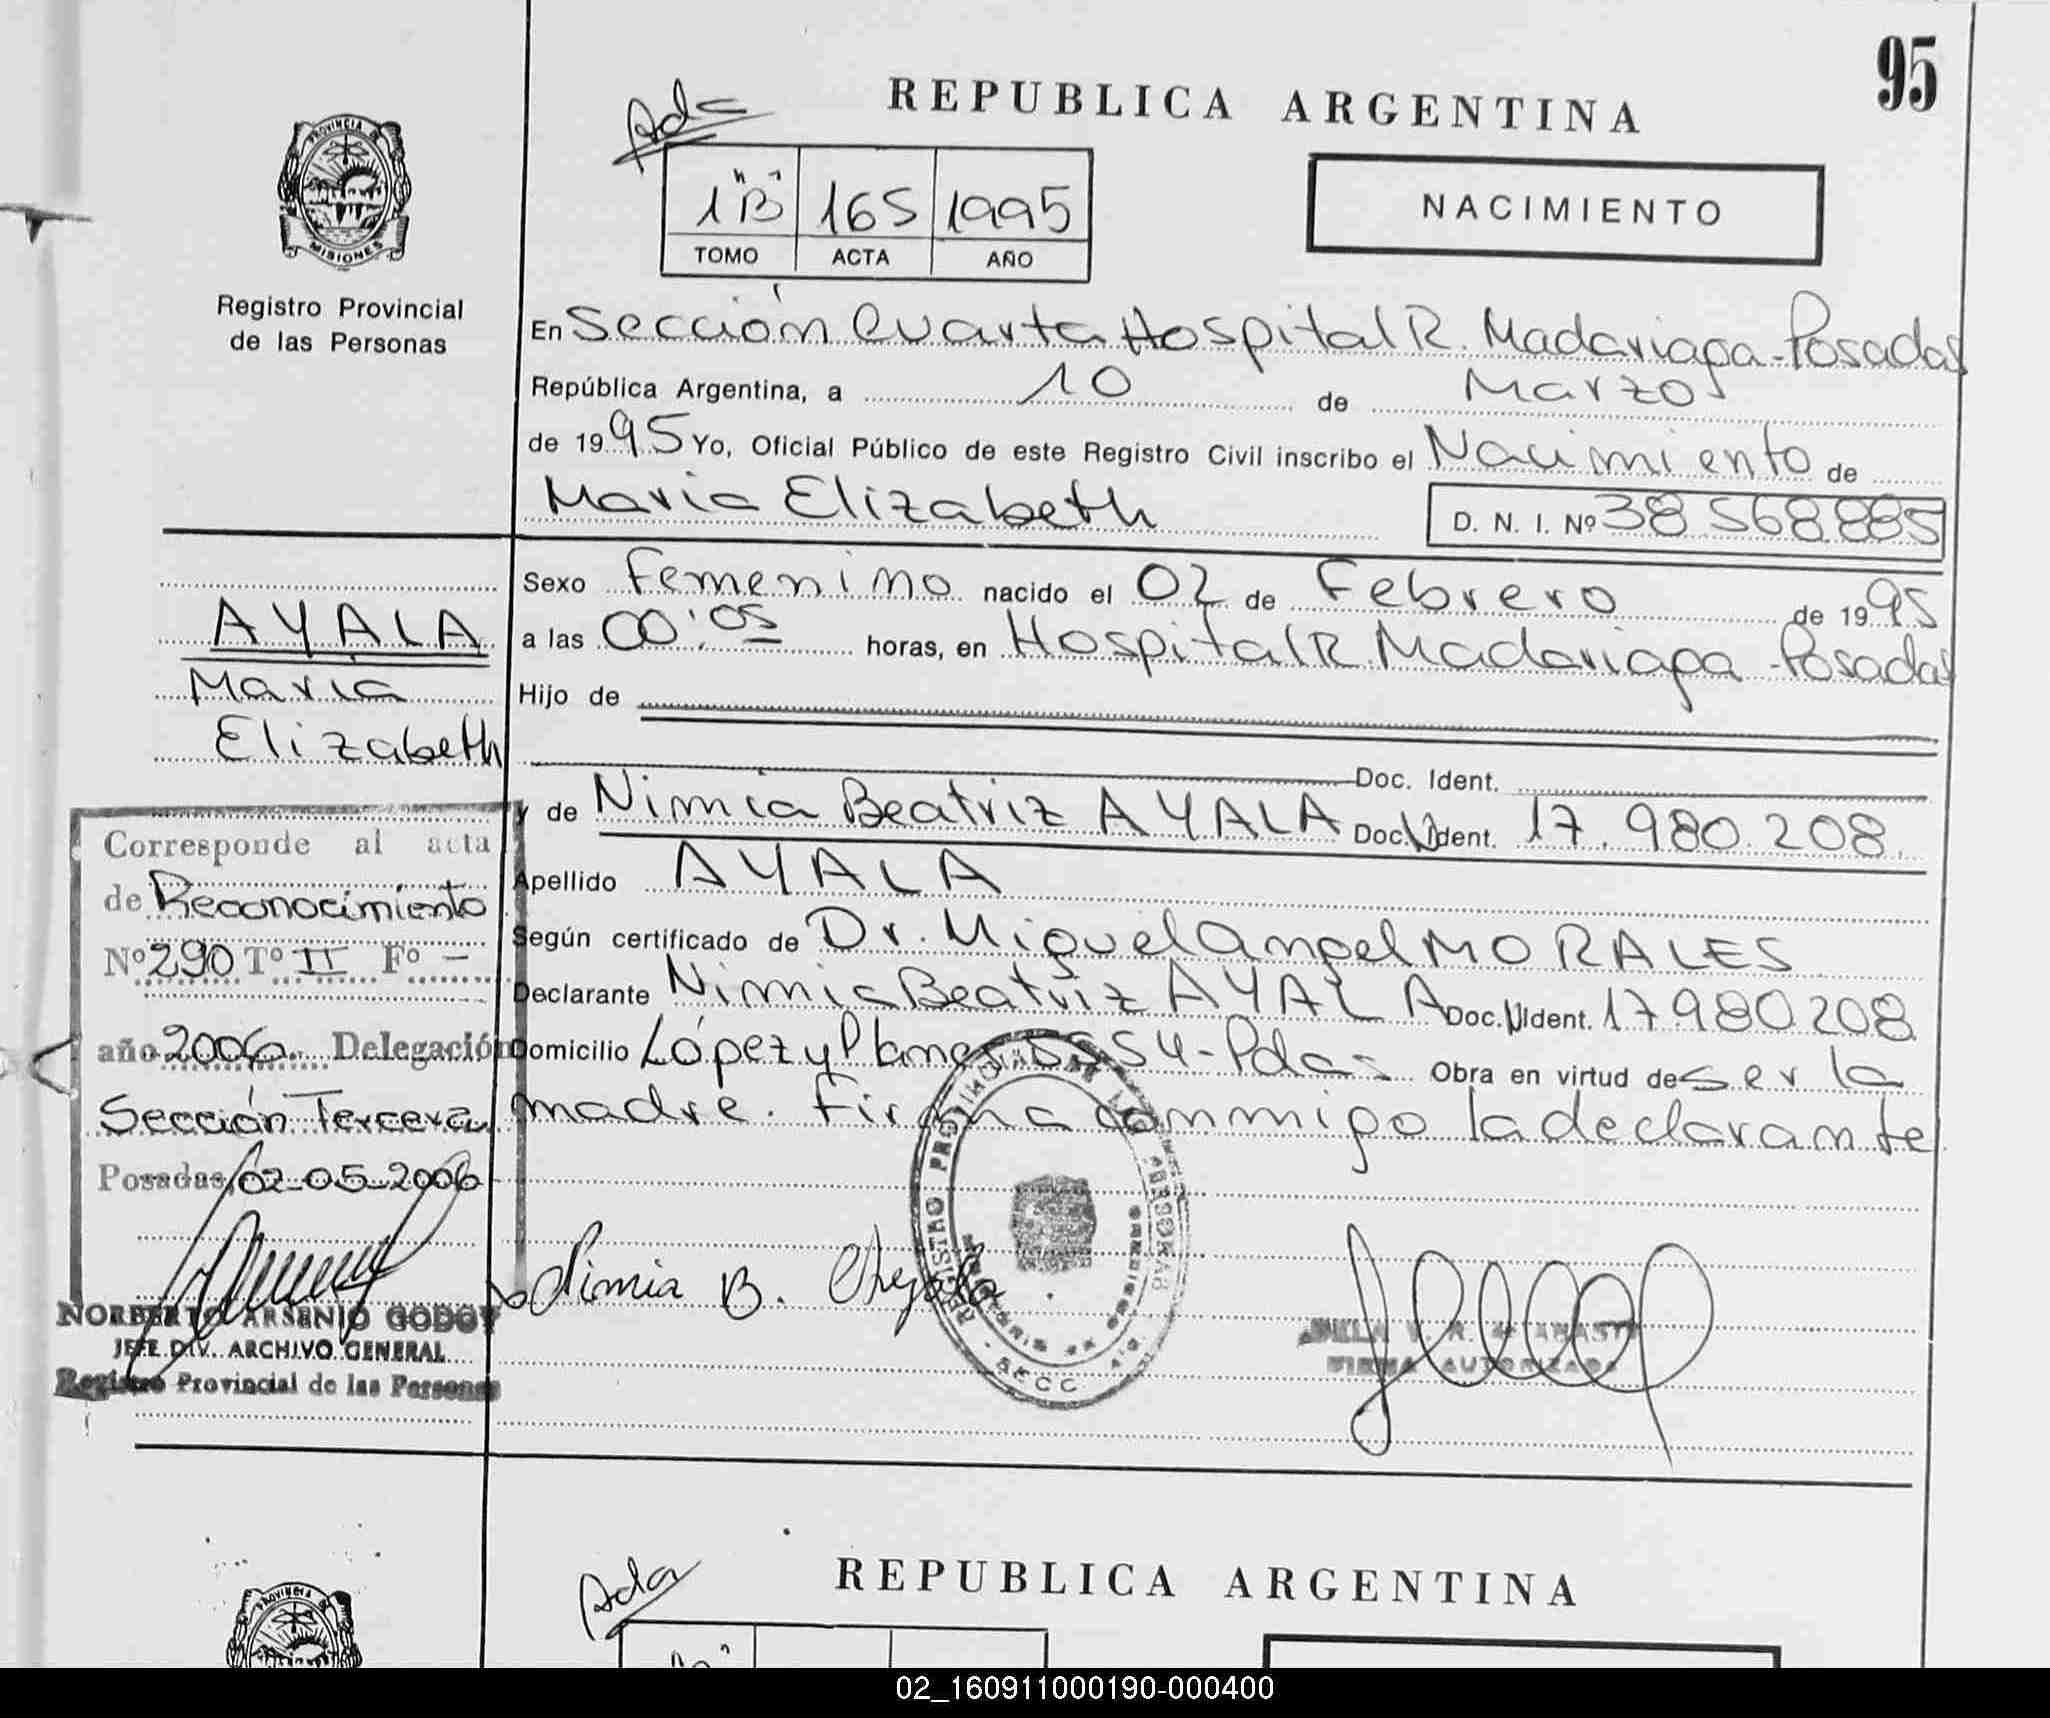 95
REPUBLICA ARGENTINA
PROVINCIA DE
MISIONES
Registro Provincial
de las Personas
1"B" 165 1995
TOMO ACTA AÑO
NACIMIENTO
En Sección Cuarta Hospital R. Madariaga - Posadas
República Argentina, a 10 de Marzo
de 1995 Yo, Oficial Público de este Registro Civil inscribo el Nacimiento de
Maria Elizabeth D. N. I. Nº 38 568.885
AYALA
Maria
Elizabeth
Sexo Femenino nacido el 02 de Febrero de 1995
a las 00:05 horas, en Hospital R. Madariaga - Posadas
Hijo de
Doc. Ident.
y de Nimia Beatriz AYALA Doc. Ident. 17.980.208
Apellido AYALA
Según certificado de Dr. Miguel Angel MORALES
Declarante Nimia Beatriz AYALA Doc. Ident. 17980208
Domicilio López y Planes 5554 - Pdas Obra en virtud de ser la
madre. Firma conmigo la declarante
Corresponde al acta
de Reconocimiento
Nº 290 Tº II Fº -
año 2006 Delegación
Sección Tercera
Posadas, 02-05-2006
NORBERTO ARSENIO GODOY
JEFE DIV. ARCHIVO GENERAL
Registro Provincial de las Personas
Nimia B. Ayala
REGISTRO PROVINCIAL DE LAS PERSONAS
MISIONES
SECC. 4a
FIRMA AUTORIZADA
REPUBLICA ARGENTINA
PROVINCIA DE
02_160911000190-000400